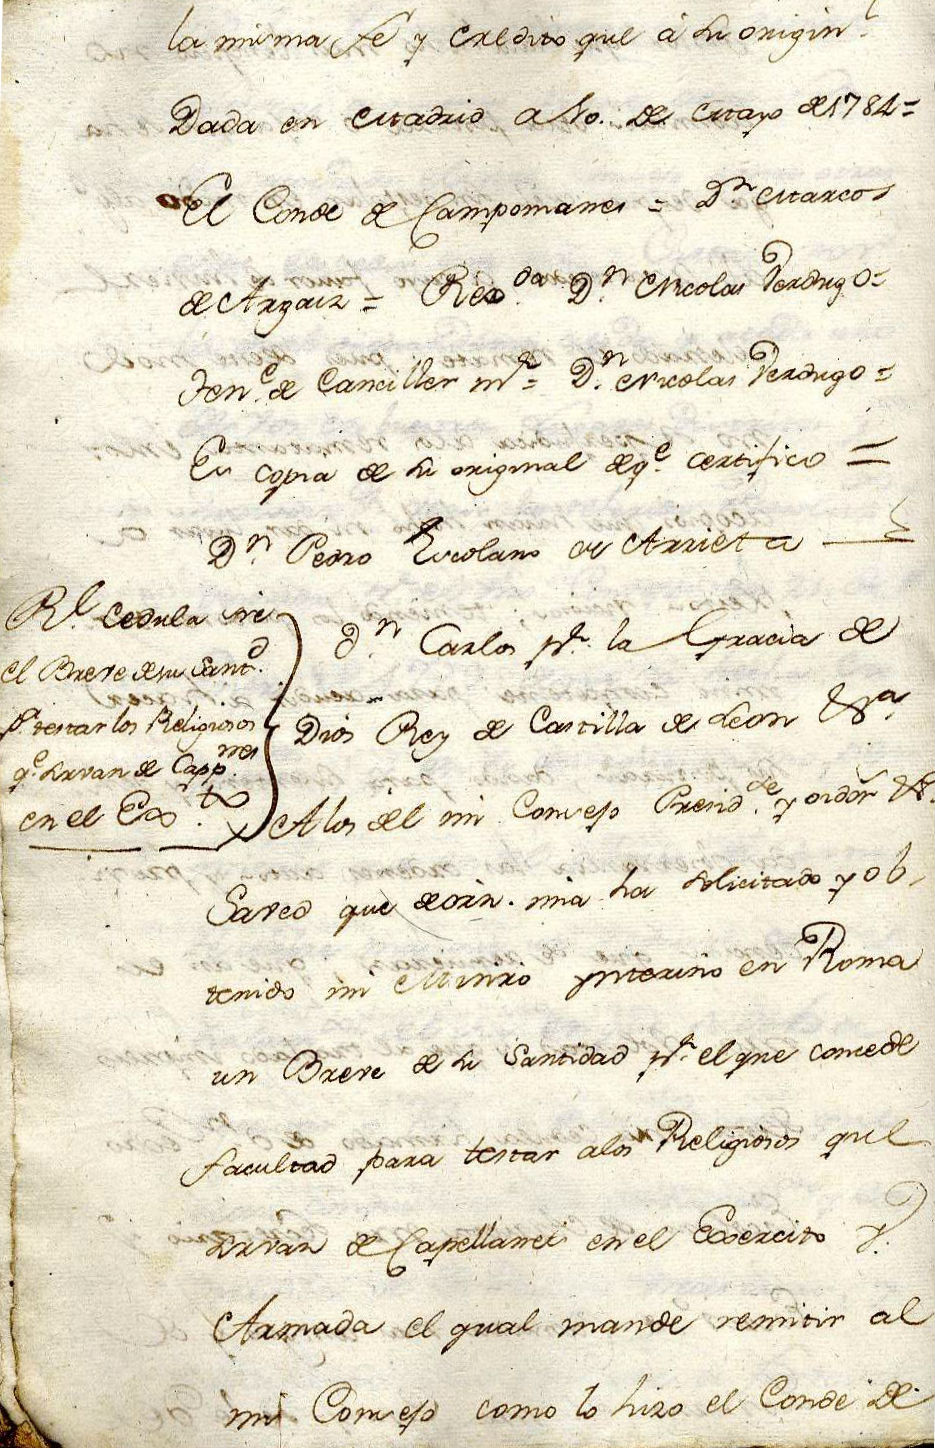 la misma fe y credito que á su origin.l
Dada en Madrid a de Mayo de 1784=
El Conde de Campomanes = Dn Marcos
de Argaiz = Rexda. Dn. Nicolas Verdugo=
Tente. de Canciller mr.= Dn. Nicolas Verdugo=
Es copia de su original de qe. certifico =
Dn. Pedro Escolano de Arrieta
Rl. Cedula sre
el Breve de su Santd.
pa. testar los Religiosos
qe. sirvan de Cappnes
en el Exto.
Dn Carlos pr. la Gracia de
Dios Rey de Castilla de Leon &a
A los del mi Consejo Presidte. y oidor &a.
Saved que de orn. mia ha solicitado y ob-
tenido mi Minro ynterino en Roma
un Breve de su Santidad pr. el que concede
facultad para testar a los Religiosos que
sirvan de Capellanes en el Exercito y
Armada el qual mande remitir al
mi Consejo como lo hizo el Conde de